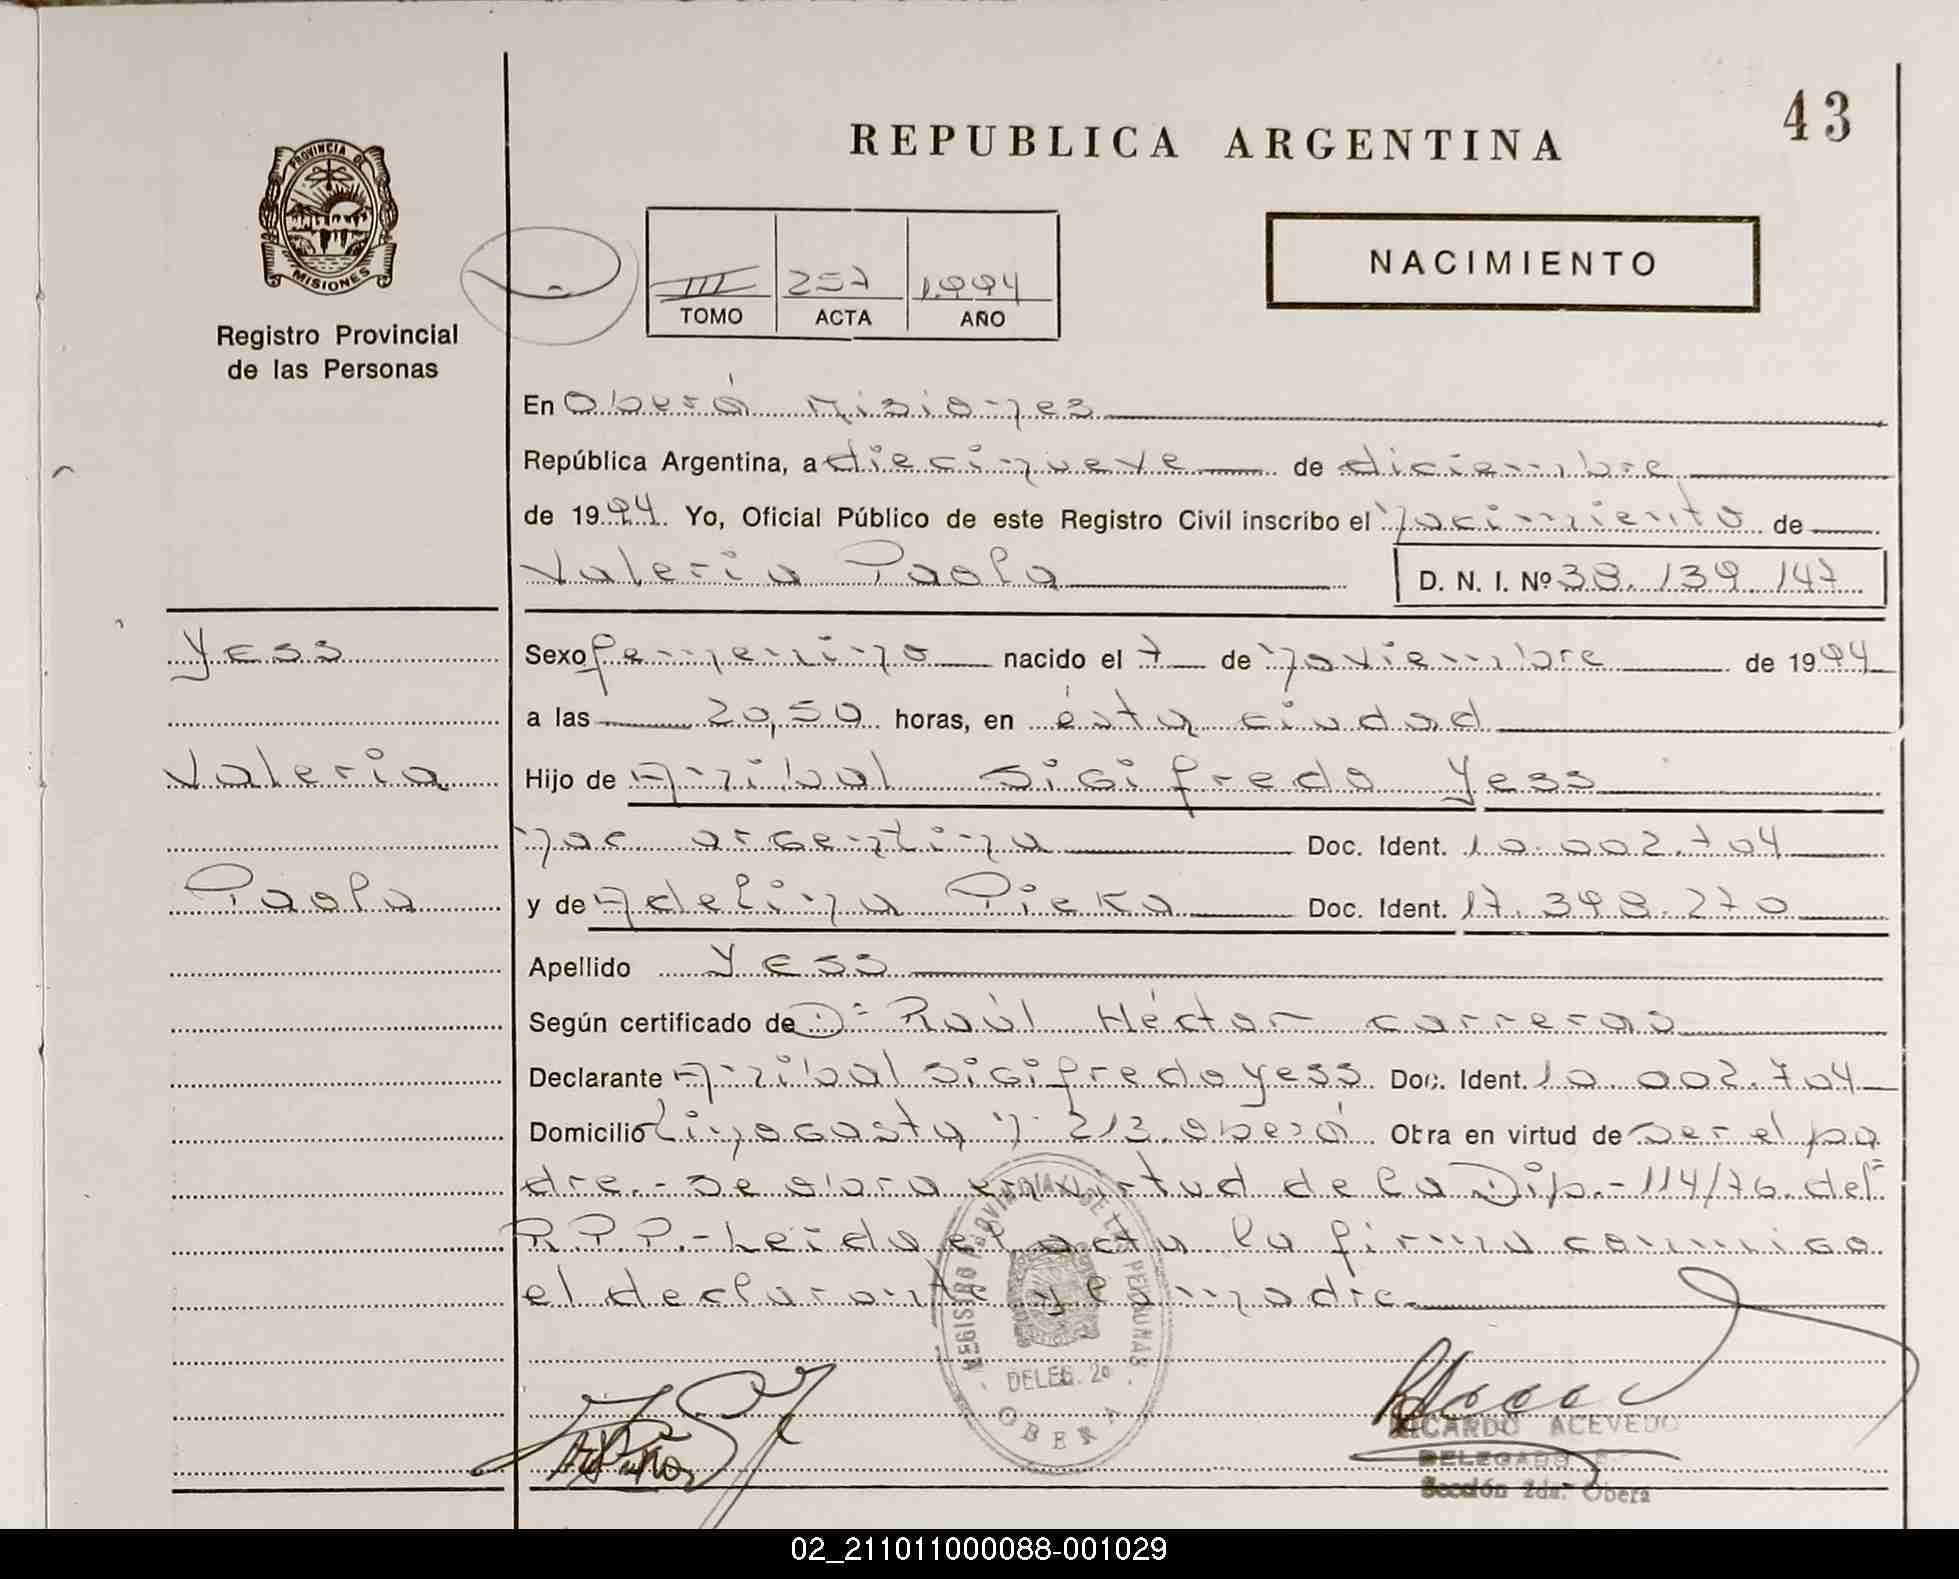 43
REPUBLICA ARGENTINA
PROVINCIA DE
MISIONES
Registro Provincial
de las Personas
III 257 1.994
TOMO ACTA AÑO
NACIMIENTO
En Oberá Misiones
República Argentina, a diecinueve de diciembre
de 1994. Yo, Oficial Público de este Registro Civil inscribo el nacimiento de
Valeria Paola D. N. I. Nº 38.139.147
Yess
Valeria
Paola
Sexo femenino nacido el 7 de noviembre de 1994
a las 20,50 horas, en ésta ciudad
Hijo de Anibal Sigifredo Yess
nac argentina Doc. Ident. 10.002.704
y de Adelina Pieka Doc. Ident. 17.398.270
Apellido Yess
Según certificado de Dº Raúl Héctor Carreras
Declarante Anibal Sigifredo Yess Doc. Ident. 10.002.704
Domicilio Linogasta Nº 213. Oberá Obra en virtud de ser el pa
dre.- Se obra en virtud de la Dip.- 114/76. del
R.P.P.- Leida el acta la firma conmigo
el declarante y la madre.
REGISTRO PROVINCIAL DE LAS PERSONAS
DELEG. 2º
OBERA
RICARDO ACEVEDO
DELEGADO
Sección 2da. Oberá
02_211011000088-001029